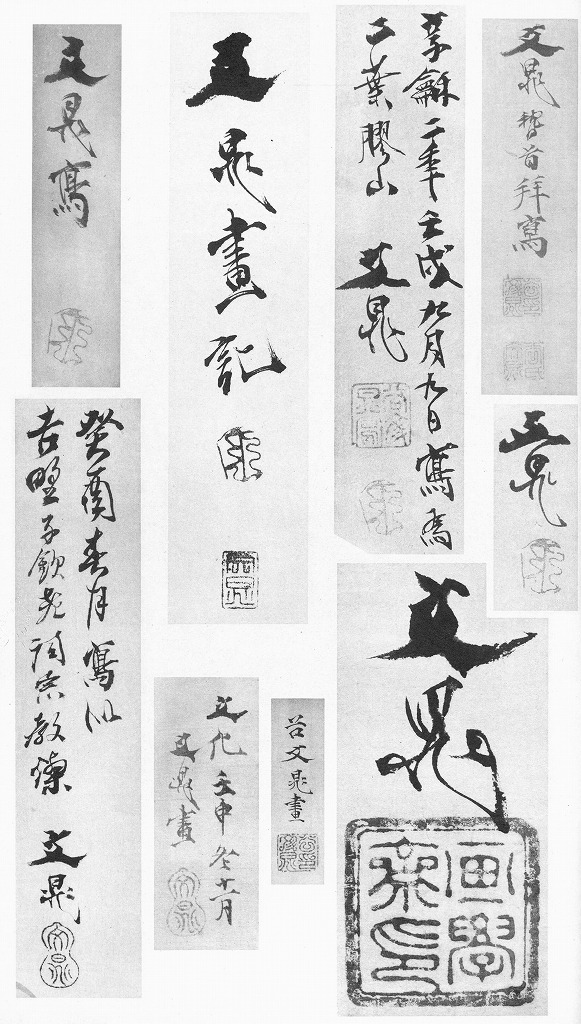 文晁稽首拜寫
享龢二年壬戌九月九日寫為
二葉膠山 文晁
文晁畫記
文晁寫
文晁
文晁
画學
齋印
谷文晁畫
文化壬申冬十二月
文晁畫
文晁
癸酉春月寫似
吉野子欽老詞宗教粲 文晁
文晁